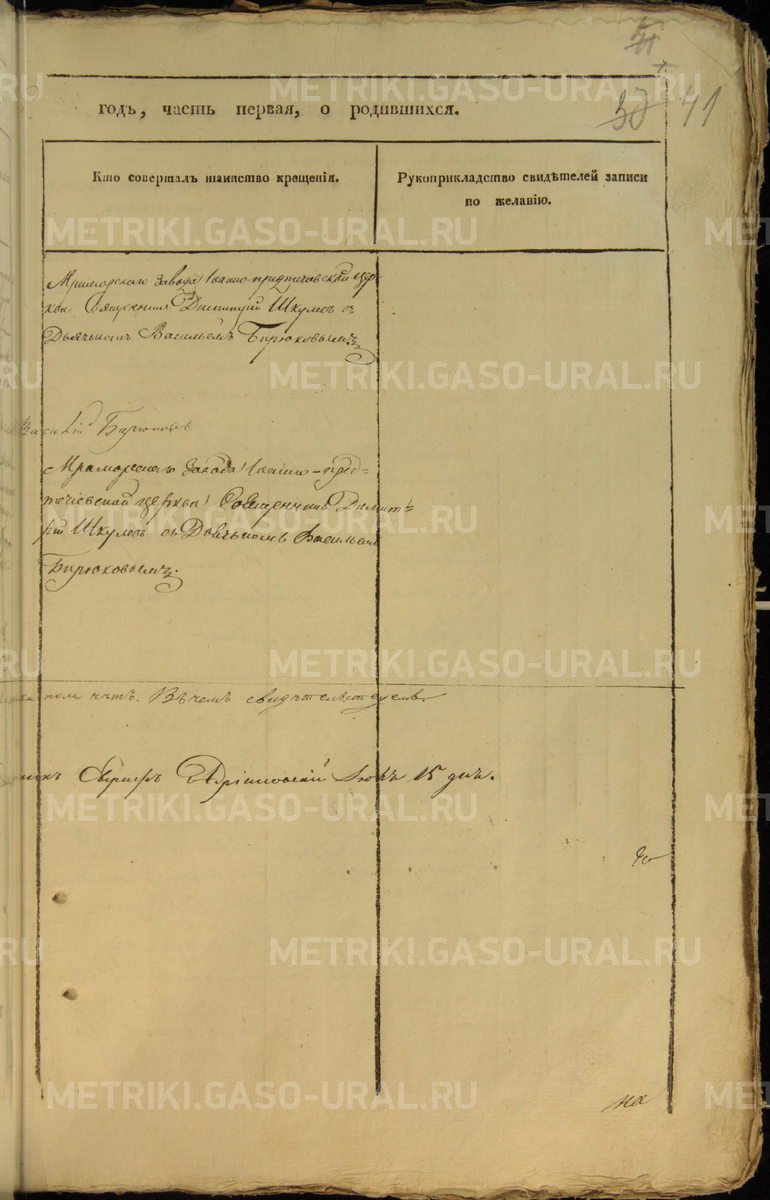 41
годъ, часть первая, о родившихся.
Кто совершалъ таинство крещенія.
Рукоприкладство свидѣтелей записи по желанію.
Мраморскаго завода Іоанно-предтечевской цер-
кви Священникъ Димитрій Шкулевъ съ
Дьячькомъ Василіемъ Бирюковымъ
Василій Бирюковъ
Мраморскаго завода Іоанно-пред-
течевской церкви Священникъ Димит-
рій Шкулевъ съ Дьячькомъ Василіемъ
Бирюковымъ.
пола нѣтъ. Въ чемъ свидѣтельствуемъ
15 дня.
на
METRIKI.GASO-URAL.RU